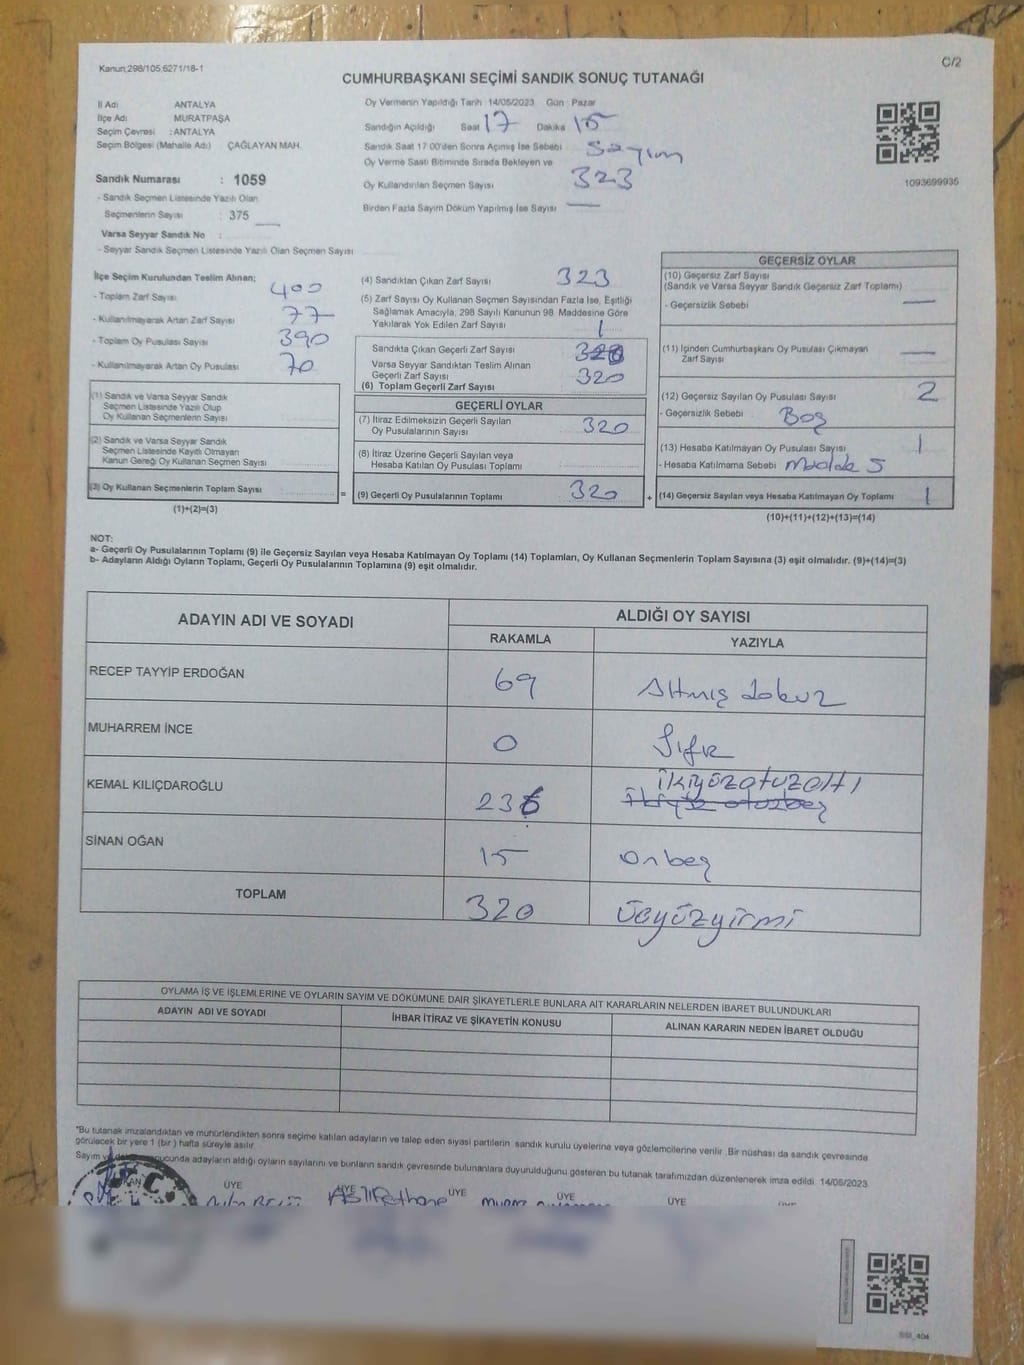 Kanun;298/105,6271/18-1
C/2
CUMHURBAŞKANI SEÇİMİ SANDIK SONUÇ TUTANAĞI
İl Adı ANTALYA
İlçe Adı MURATPAŞA
Seçim Çevresi : ANTALYA
Seçim Bölgesi (Mahalle Adı) ÇAĞLAYAN MAH.
Oy Vermenin Yapıldığı Tarih 14/05/2023 Gün Pazar
Sandığın Açıldığı Saat 17 Dakika 15
Sandık Saat 17:00'den Sonra Açılmış İse Sebebi Sayım
Oy Verme Saati Bitiminde Sırada Bekleyen ve
Oy Kullandırılan Seçmen Sayısı 323
Birden Fazla Sayım Döküm Yapılmış İse Sayısı —
1093699935
Sandık Numarası : 1059
- Sandık Seçmen Listesinde Yazılı Olan
Seçmenlerin Sayısı : 375
Varsa Seyyar Sandık No :
- Seyyar Sandık Seçmen Listesinde Yazılı Olan Seçmen Sayısı
İlçe Seçim Kurulundan Teslim Alınan;
- Toplam Zarf Sayısı 400
- Kullanılmayarak Artan Zarf Sayısı 77
- Toplam Oy Pusulası Sayısı 390
- Kullanılmayarak Artan Oy Pusulası 70
(1) Sandık ve Varsa Seyyar Sandık
Seçmen Listesinde Yazılı Olup
Oy Kullanan Seçmen Sayısı
(2) Sandık ve Varsa Seyyar Sandık
Seçmen Listesinde Kayıtlı Olmayan
Kanun Gereği Oy Kullanan Seçmen Sayısı
(3) Oy Kullanan Seçmenlerin Toplam Sayısı =
(1)+(2)=(3)
(4) Sandıktan Çıkan Zarf Sayısı 323
(5) Zarf Sayısı Oy Kullanan Seçmen Sayısından Fazla İse, Eşitliği
Sağlamak Amacıyla, 298 Sayılı Kanunun 98. Maddesine Göre
Yakılarak Yok Edilen Zarf Sayısı 1
Sandıkta Çıkan Geçerli Zarf Sayısı
Varsa Seyyar Sandıktan Teslim Alınan
Geçerli Zarf Sayısı 320
(6) Toplam Geçerli Zarf Sayısı
GEÇERLİ OYLAR
(7) İtiraz Edilmeksizin Geçerli Sayılan
Oy Pusulalarının Sayısı 320
(8) İtiraz Üzerine Geçerli Sayılan veya
Hesaba Katılan Oy Pusulası Toplamı
(9) Geçerli Oy Pusulalarının Toplamı 320 +
GEÇERSİZ OYLAR
(10) Geçersiz Zarf Sayısı
(Sandık ve Varsa Seyyar Sandık Geçersiz Zarf Toplamı)
- Geçersizlik Sebebi —
(11) İçinden Cumhurbaşkanı Oy Pusulası Çıkmayan
Zarf Sayısı —
(12) Geçersiz Sayılan Oy Pusulası Sayısı 2
- Geçersizlik Sebebi Boş
(13) Hesaba Katılmayan Oy Pusulası Sayısı 1
- Hesaba Katılmama Sebebi 5
(14) Geçersiz Sayılan veya Hesaba Katılmayan Oy Toplamı 1
(10)+(11)+(12)+(13)=(14)
NOT:
a- Geçerli Oy Pusulalarının Toplamı (9) ile Geçersiz Sayılan veya Hesaba Katılmayan Oy Toplamı (14) Toplamları, Oy Kullanan Seçmenlerin Toplam Sayısına (3) eşit olmalıdır. (9)+(14)=(3)
b- Adayların Aldığı Oyların Toplamı, Geçerli Oy Pusulalarının Toplamına (9) eşit olmalıdır.
ADAYIN ADI VE SOYADI
ALDIĞI OY SAYISI
RAKAMLA YAZIYLA
RECEP TAYYİP ERDOĞAN 69 Altmış dokuz
MUHARREM İNCE 0 Sıfır
KEMAL KILIÇDAROĞLU 236 ikiyüzotuzaltı
ikiyüz otuzbeş
SİNAN OĞAN 15 Onbeş
TOPLAM 320 üçyüzyirmi
OYLAMA İŞ VE İŞLEMLERİNE VE OYLARIN SAYIM VE DÖKÜMÜNE DAİR ŞİKAYETLERLE BUNLARA AİT KARARLARIN NELERDEN İBARET BULUNDUKLARI
ADAYIN ADI VE SOYADI İHBAR İTİRAZ VE ŞİKAYETİN KONUSU ALINAN KARARIN NEDEN İBARET OLDUĞU
"Bu tutanak imzalandıktan ve mühürlendikten sonra seçime katılan adayların ve talep eden siyasi partilerin sandık kurulu üyelerine veya gözlemcilerine verilir. Bir nüshası da sandık çevresinde
görülecek bir yere 1 (bir) hafta süreyle asılır.
Sayım ve ucunda adayların aldığı oyların sayılarını ve bunların sandık çevresinde bulunanlara duyurulduğunu gösteren bu tutanak tarafımızdan düzenlenerek imza edildi. 14/05/2023
ÜYE ÜYE ÜYE ÜYE ÜYE